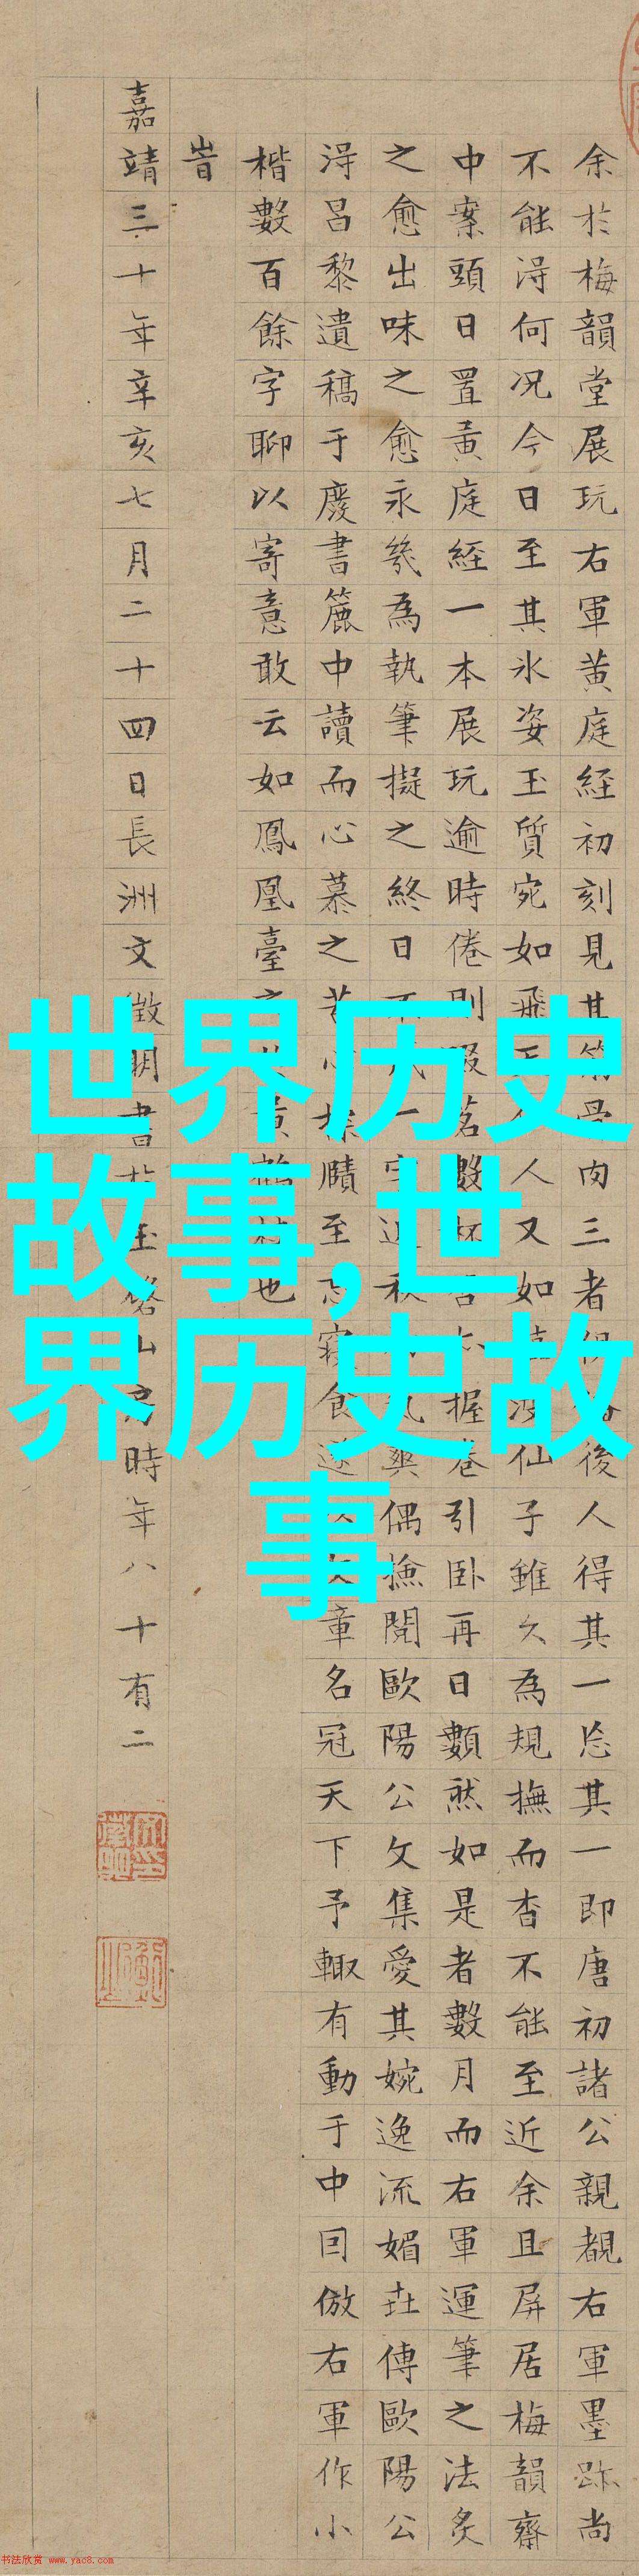 余於梅韻堂展玩右軍黄庭經初刻見其筋骨肉三者俱後人得其一忘其一即唐初諸公親覩右軍墨跡尚
不能淂何况今日至其氷姿玉質宛如飛人又如仙子雖久為規撫而杳不能至近余且屏居梅韻齋
中案頭日置黄庭經一本展玩逾時倦則啜茗數杯握卷引卧再日數然如是者數月而右軍運筆之法炙
之愈出味之愈永幾為執筆擬之終日不一字近秋氣爽偶撿閱歐陽公文集愛其婉逸流媚其傳歐陽公
淂吕黎遺稿于廢書簏中讀而心慕之苦心探賾至忘寢食遂以文章名冠天下予輙有動于中因倣右軍作小
楷數百餘字聊以寄意敢云如鳳凰臺之黄鶴也
旹
嘉靖三十年辛亥七月二十四日長洲文徵明書於玉磬山房時年八十有二
世界历史
故事,世
界历史故
事
书法欣赏 www.yac8.com